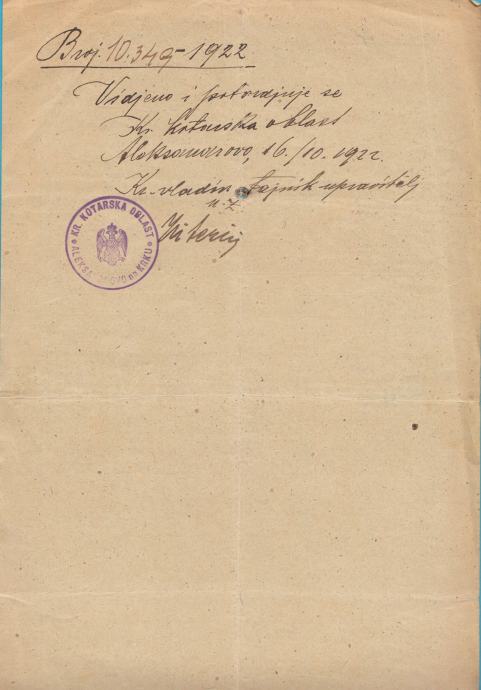 Broj. 10.349-1922
Vidjeno i potvrdjuje se
Kr. kotarska oblast
Aleksandrovo, 16./10. 1922.
Kr. vladin tajnik-upravitelj
u. z.
KR. KOTARSKA OBLAST
ALEKSA OVO na KRKU